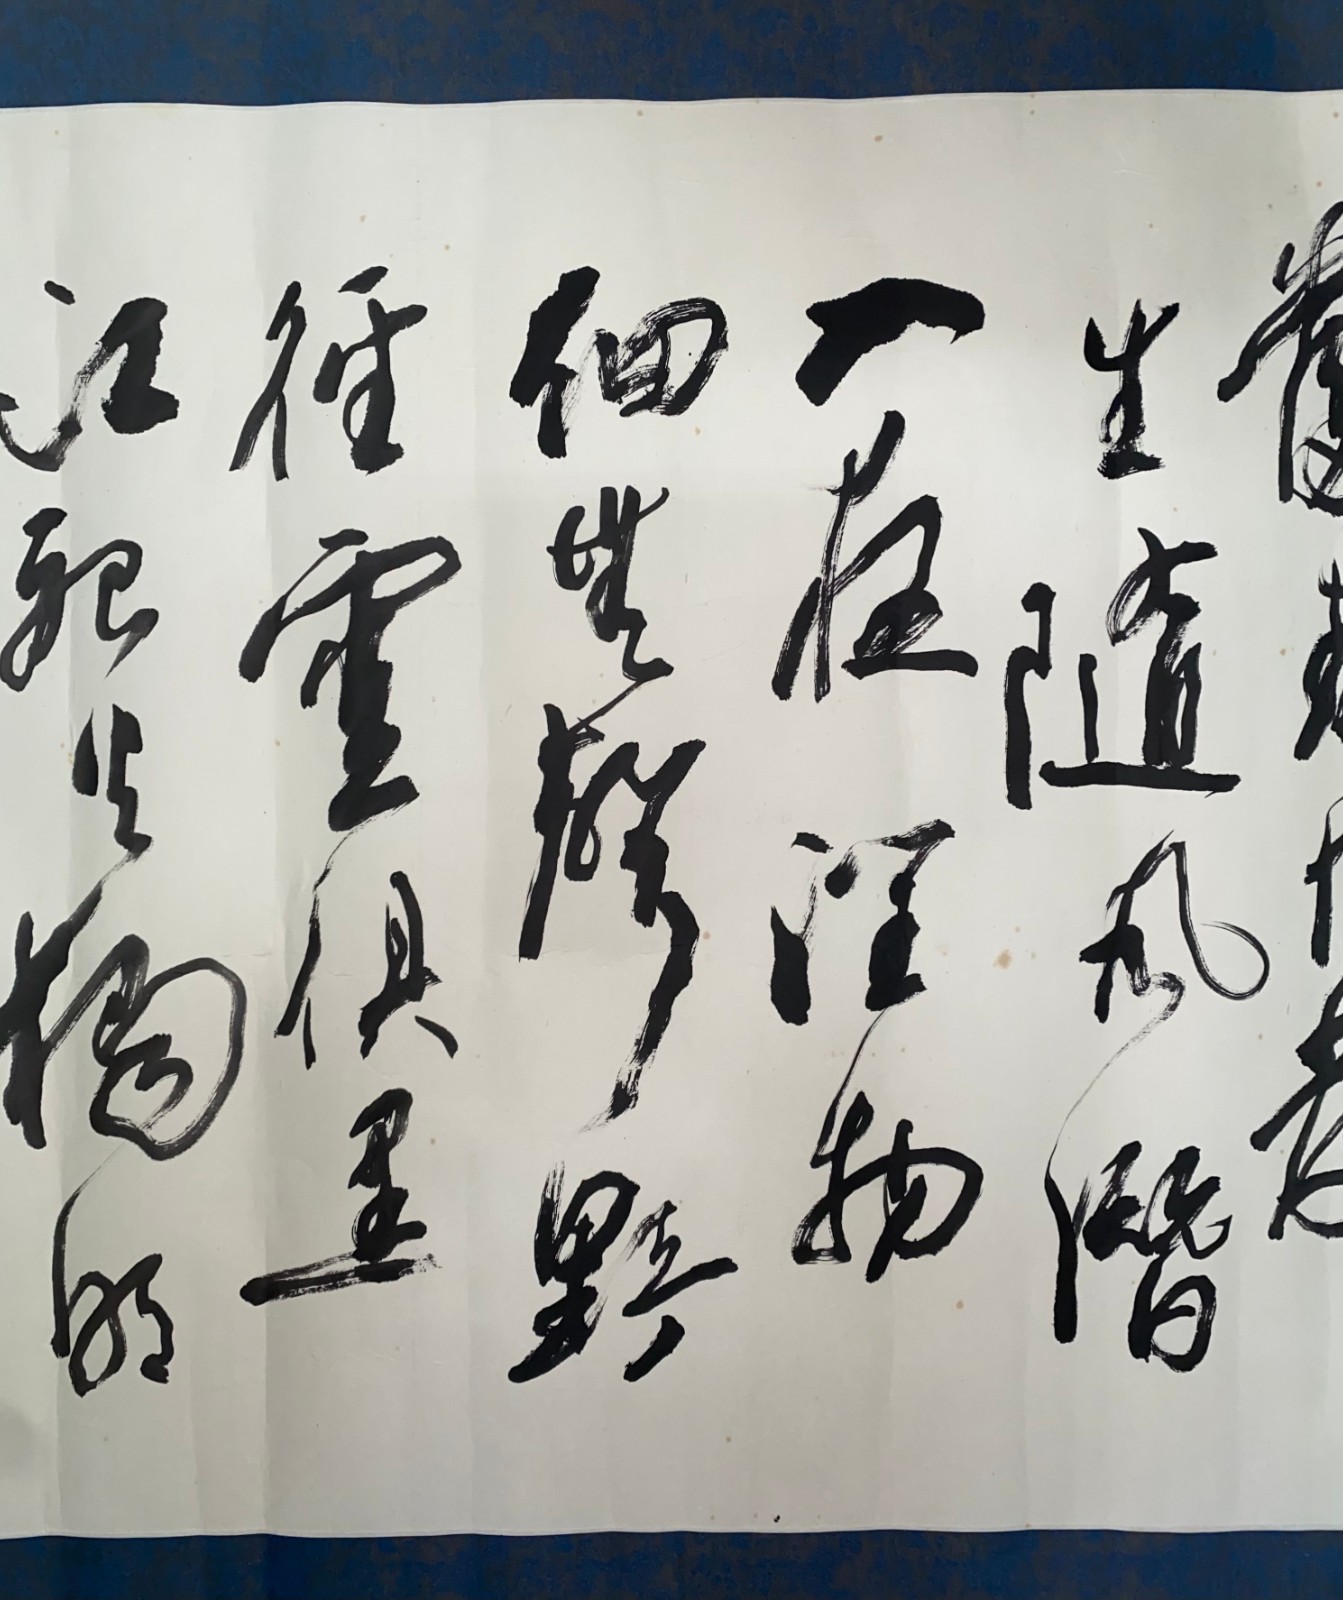 生隨風潛
入夜潤物
細無聲野
徑雲俱黑
江船火獨明